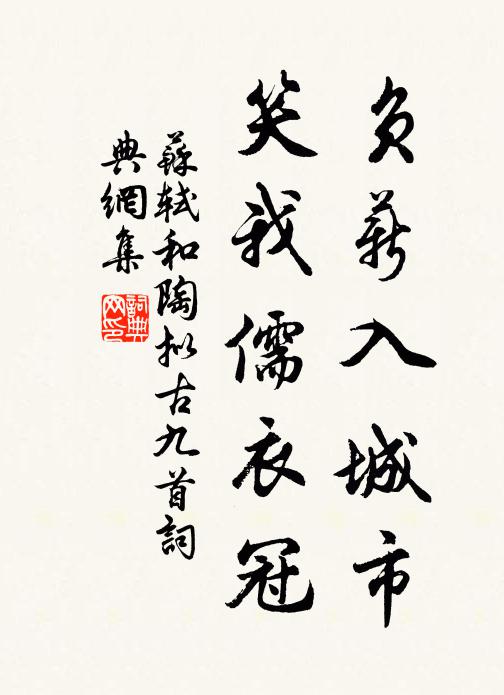 負薪入城市
笑我儒衣冠
蘇軾和陶擬古九首詞
典網集
詞典网印